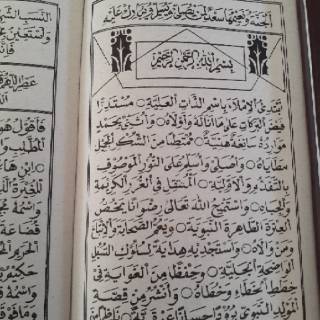 الجنة ونعيمها سعد لمن يصلي ويسلم ويبارك عليه
بسم الله الرحمن الرحيم
أبتدئ الإملاء باسم الذات العلية ۞ مستدرا
فيض البركات على ما أناله وأولاه ۞ وأثني بحمد
موارده سائغة هنية ۞ ممتطيا من الشكر الجميل
مطاياه ۞ وأصلي وأسلم على النور الموصوف
بالتقدم والأولية ۞ المنتقل في الغرر الكريمة
والجباه ۞ وأستمنح الله تعالى رضوانا يخص
العترة الطاهرة النبوية ۞ ويعم الصحابة والأتباع
ومن والاه ۞ وأستجديه هداية لسلوك السبل
الواضحة الجلية ۞ وحفظا من الغواية في
خطط الخطاء وخطاه ۞ وأنشر من قصة
المولد النبوي برودا حسانا عبقرية ۞ ناظما من
ولنستعين
فأقول هو
المطلب و